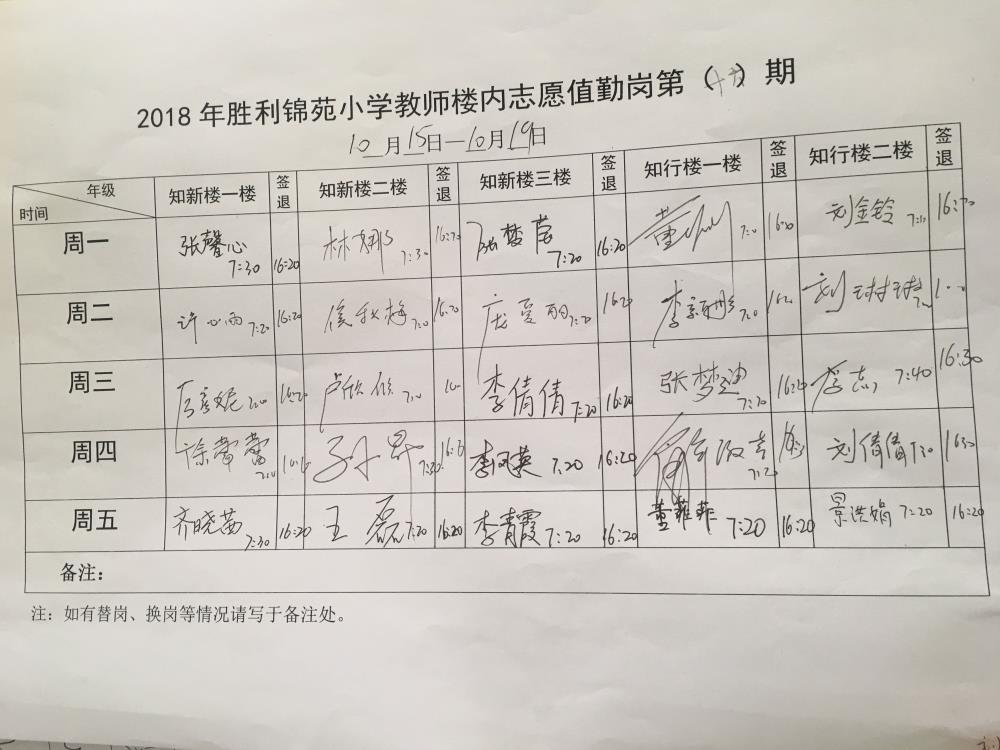 2018年胜利锦苑小学教师楼内志愿值勤岗第（十六）期
10月15日—10月19日
年级 时间 知新楼一楼 签退 知新楼二楼 签退 知新楼三楼 签退 知行楼一楼 签退 知行楼二楼 签退
周一 张馨心 7:30 16:20 林娜 7:30 16:20 张梦莹 7:20 16:20 董 刘金铃 16:20
周二 许心雨 7:20 16:20 侯秋梅 16:20 庞爱丽 7:20 16:20 李 刘球球
周三 16:20 卢欣欣 李倩倩 7:20 16:20 张梦迪 7:20 16:20 李志 7:40 16:30
周四 徐蕾蕾 孙昇 7:30 李凤英 7:20 16:20 7:20 刘倩倩 7:30 16:30
周五 齐晓茜 7:30 16:20 王磊 7:20 16:20 李青霞 7:20 16:20 董菲菲 7:20 16:20 景洪娟 7:20 16:20
备注：
注：如有替岗、换岗等情况请写于备注处。